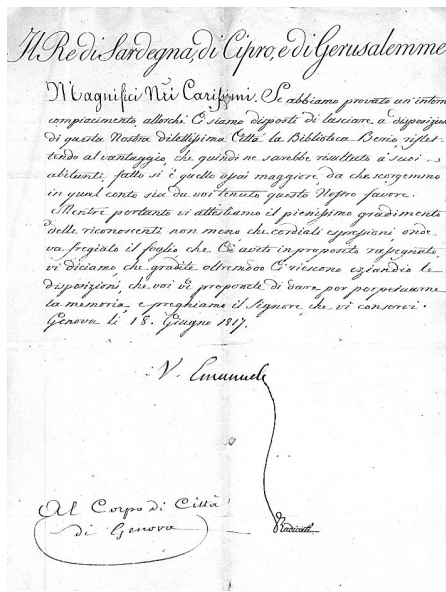 Il Re di Sardegna, di Cipro, e di Gerusalemme
Magnifici Nri Carissimi. Se abbiamo provato un intero
compiacimento, allorchè Ci siamo disposti di lasciare a disposizione
di questa Nostra dilettissima Città la Biblioteca Berio, riflet-
tendo al vantaggio, che quindi ne sarebbe risultato a' suoi
abitanti, fatto si è quello assai maggiore da che scorgemmo
in qual conto sia da voi tenuto questo Nostro favore.
Mentre portanto vi attestiamo il pienissimo gradimento
delle riconoscenti non meno che cordiali espressioni onde
va fregiato il foglio che Ci avete in proposito rassegnato,
vi diciamo, che gradite oltremodo Ci riescono eziandio le
disposizioni, che voi vi proponete di dare per perpetuarne
la memoria, e preghiamo il Signore, che vi conservi.
Genova li 18. Giugno 1817.
V. Emanuele
Al Corpo di Città
di Genova